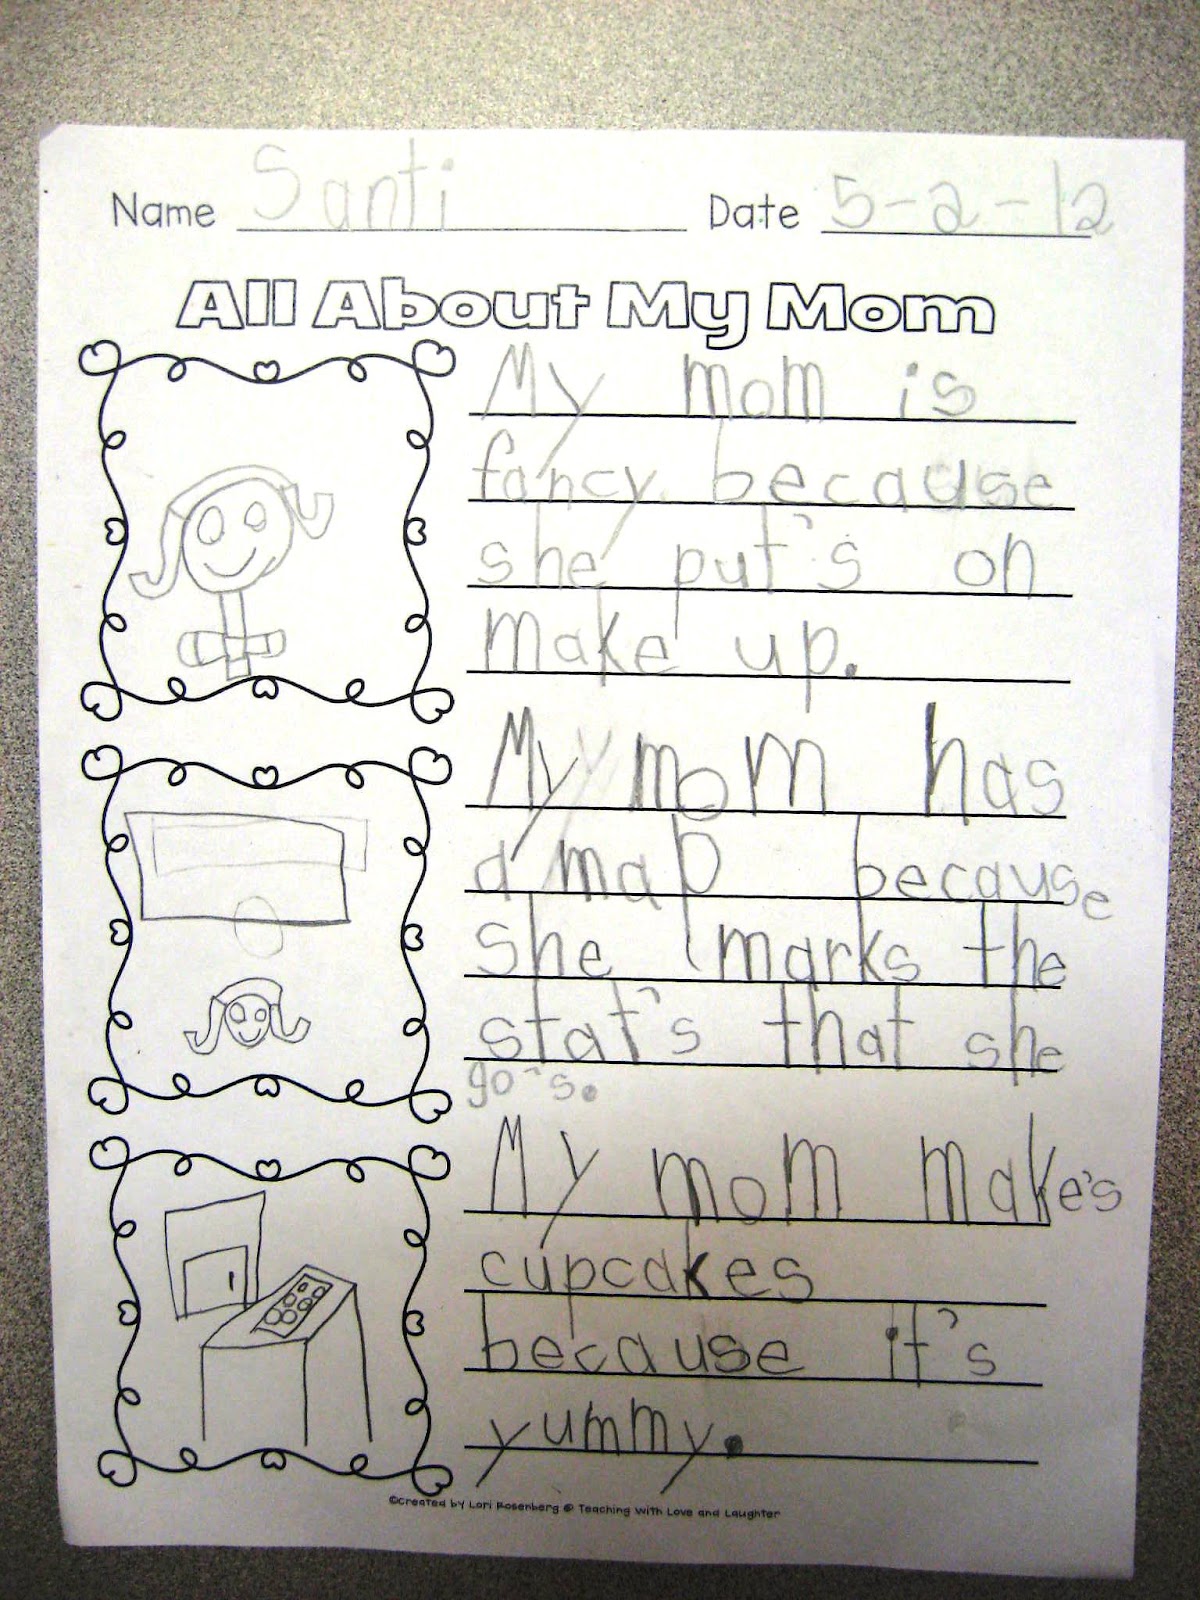 Name Santi Date 5-2-12
All About My Mom
My mom is
fancy because
she put's on
make up.
My mom has
a map because
she marks the
stat's that she
go's.
My mom make's
cupcakes
because it's
yummy.
©Created by Lori Rosenberg @ Teaching With Love and Laughter